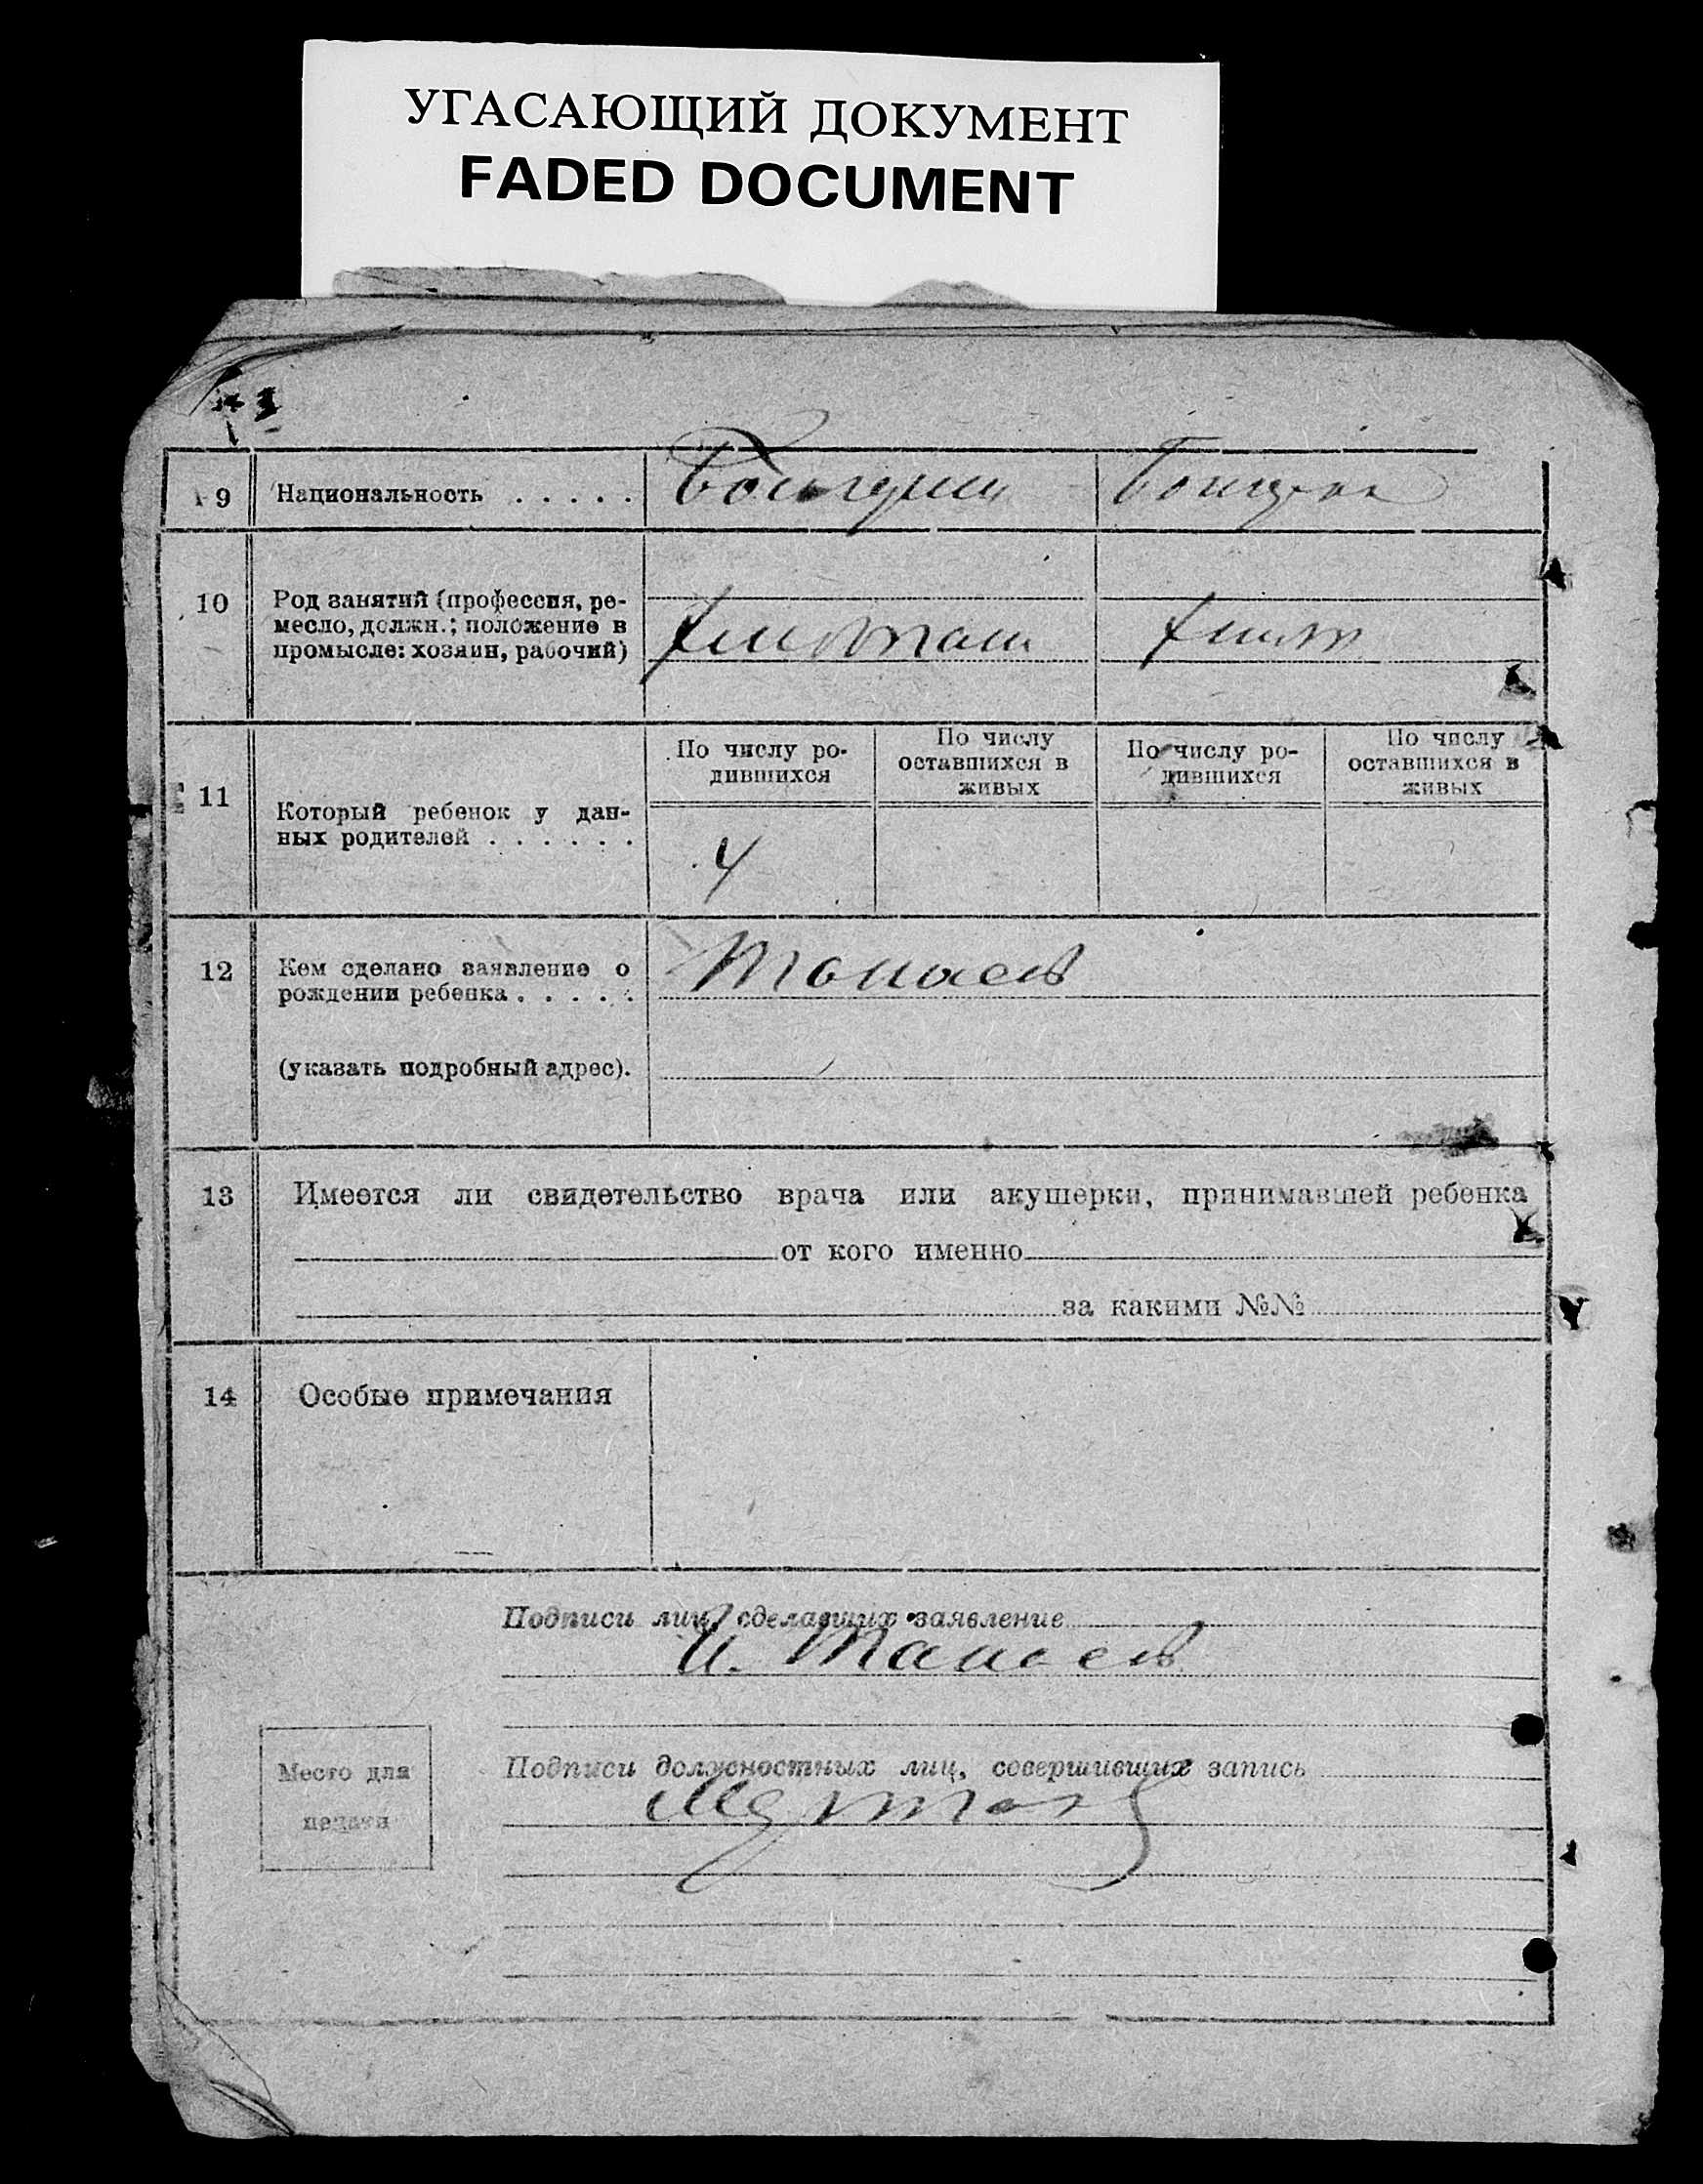 УГАСАЮЩИЙ ДОКУМЕНТ
FADED DOCUMENT
9 Национальность . . . . .
10 Род занятий (профессия, ре-
месло, должн.; положение в
промысле: хозяин, рабочий)
По числу ро-
дившихся
По числу
оставшихся в
живых
По числу ро-
дившихся
По числу
оставшихся в
живых
11 Который ребенок у дан-
ных родителей . . . . . .
4
12 Кем сделано заявление о
рождении ребенка . . . . .
(указать подробный адрес).
13 Имеется ли свидетельство врача или акушерки, принимавшей ребенка
от кого именно
за какими №№
14 Особые примечания
Подписи лиц, сделавших заявление
И.
Место для
печати
Подписи должностных лиц, совершивших запись